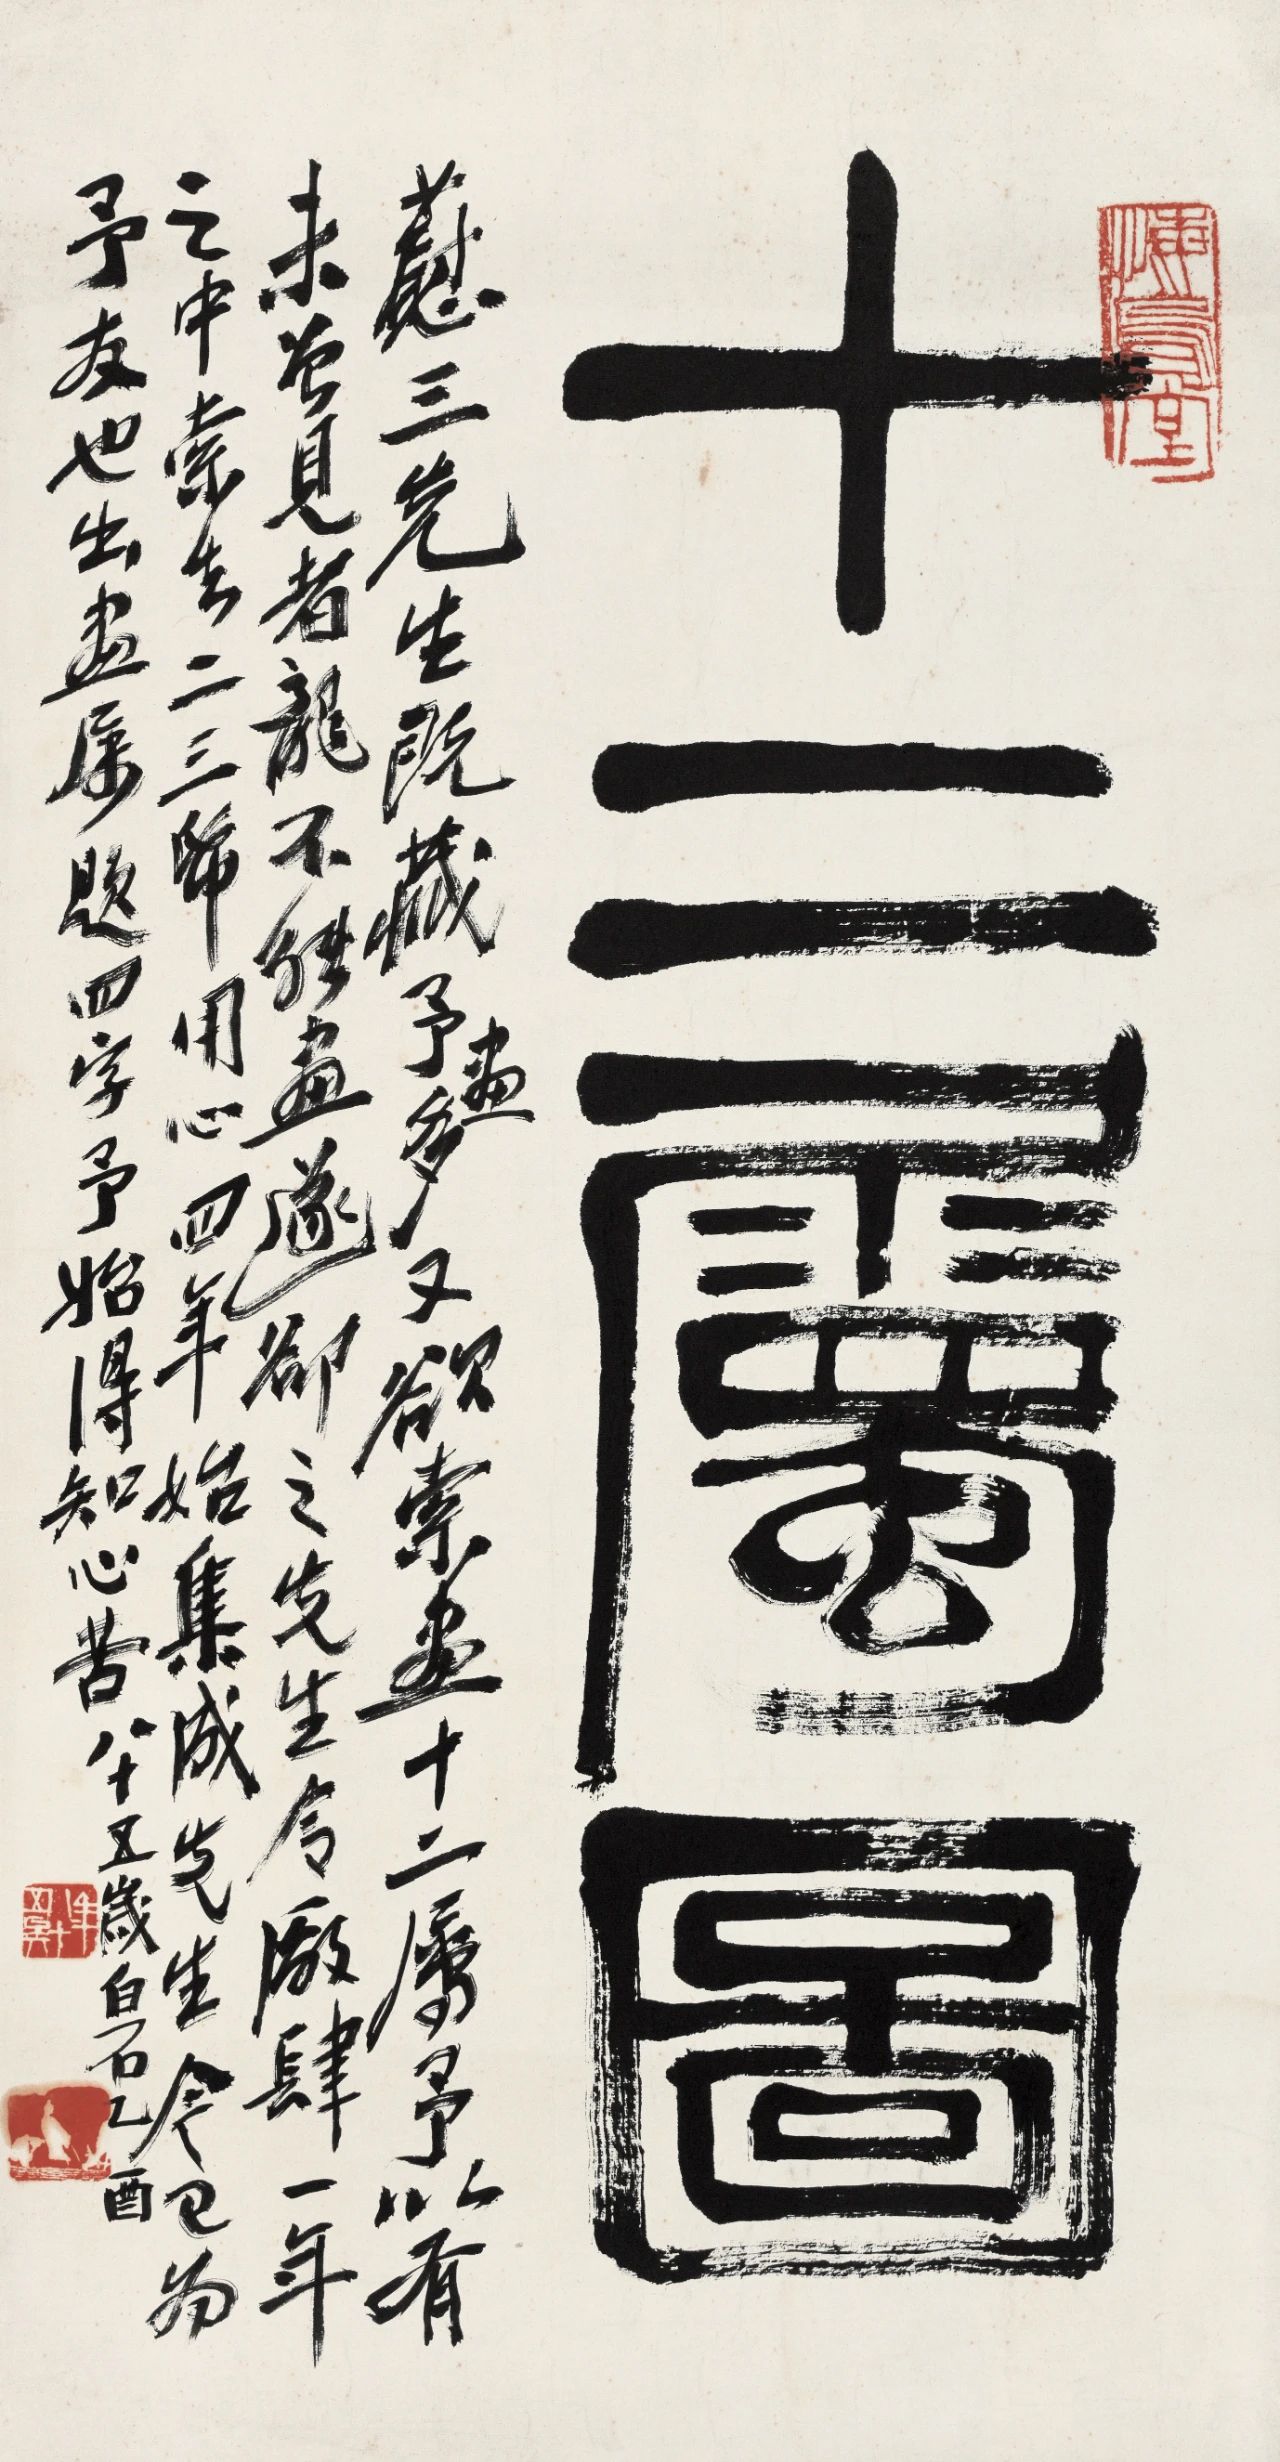 十二屬圖
三先生既藏予畫多又欲索畫十二属予以有
未曾見者龍不能畫遂卻之先生令廠肆一年
之中索去二三帋用心四年始集成先生今已為
予友也出畫属題四字予始得知心苦八十五歲白石乙酉
悔烏堂